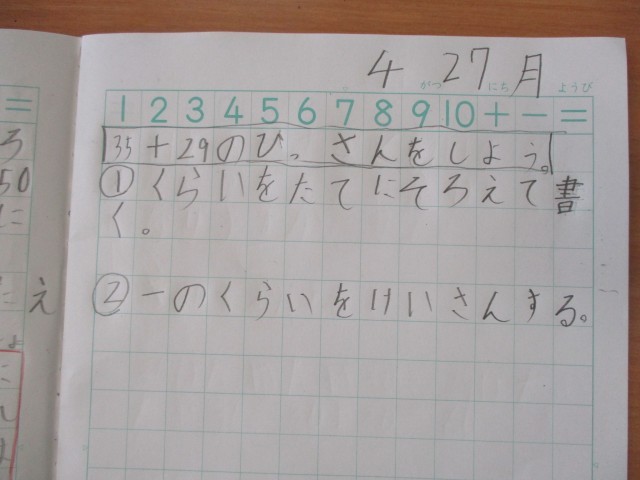 4 27 月
がつ にち ようび
1 2 3 4 5 6 7 8 9 10 + − =
35+29のひっさんをしよう。
①くらいをたてにそろえて書
く。
②一のくらいをけいさんする。
=
ろ
50
に
たえ